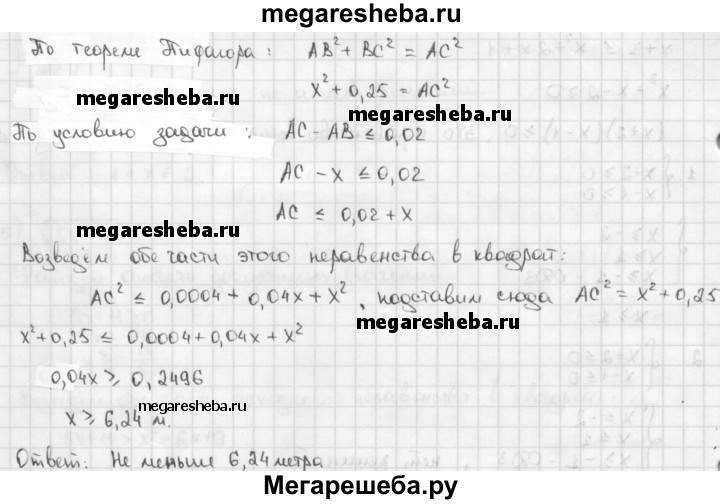 megaresheba.ru
По теореме Пифагора: AB² + BC² = AC²
x² + 0,25 = AC²
megaresheba.ru
megaresheba.ru
По условию задачи: AC - AB ≤ 0,02
AC - x ≤ 0,02
AC ≤ 0,02 + x
megaresheba.ru
Возведём обе части этого неравенства в квадрат:
AC² ≤ 0,0004 + 0,04x + x², подставим сюда AC² = x² + 0,25
megaresheba.ru
x² + 0,25 ≤ 0,0004 + 0,04x + x²
0,04x ≥ 0,2496
megaresheba.ru
x ≥ 6,24 м.
Ответ: Не меньше 6,24 метра
megaresheba.ru
Мегарешеба.ру